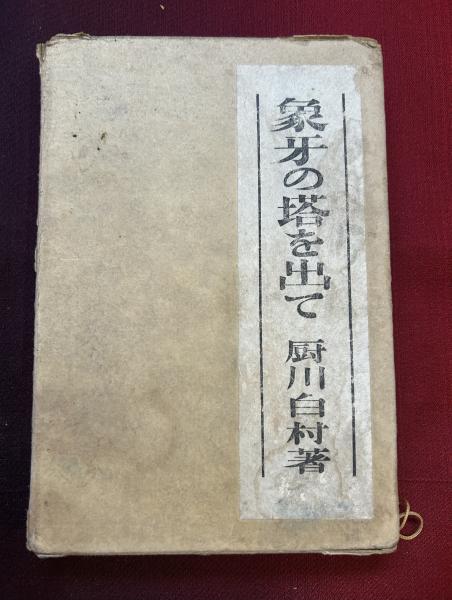 象牙の塔を出て 厨川白村著